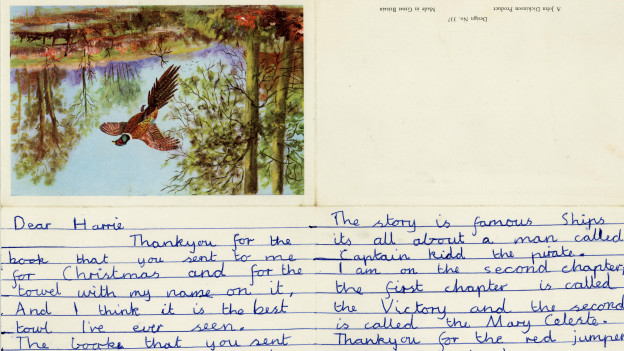 A John Dickinson Product
Made in Great Britain
Design No. 337
Dear Harrie
Thankyou for the
book that you sent to me
for Christmas and for the
towel with my name on it,
And I think it is the best
towl I've ever seen.
The books that you sent
The story is famous Ships
its all about a man called
Captain kidd the pirate.
I am on the second chapter,
the first chapter is called
the Victory and the second
is called the Mary Celeste.
Thankyou for the red jumper